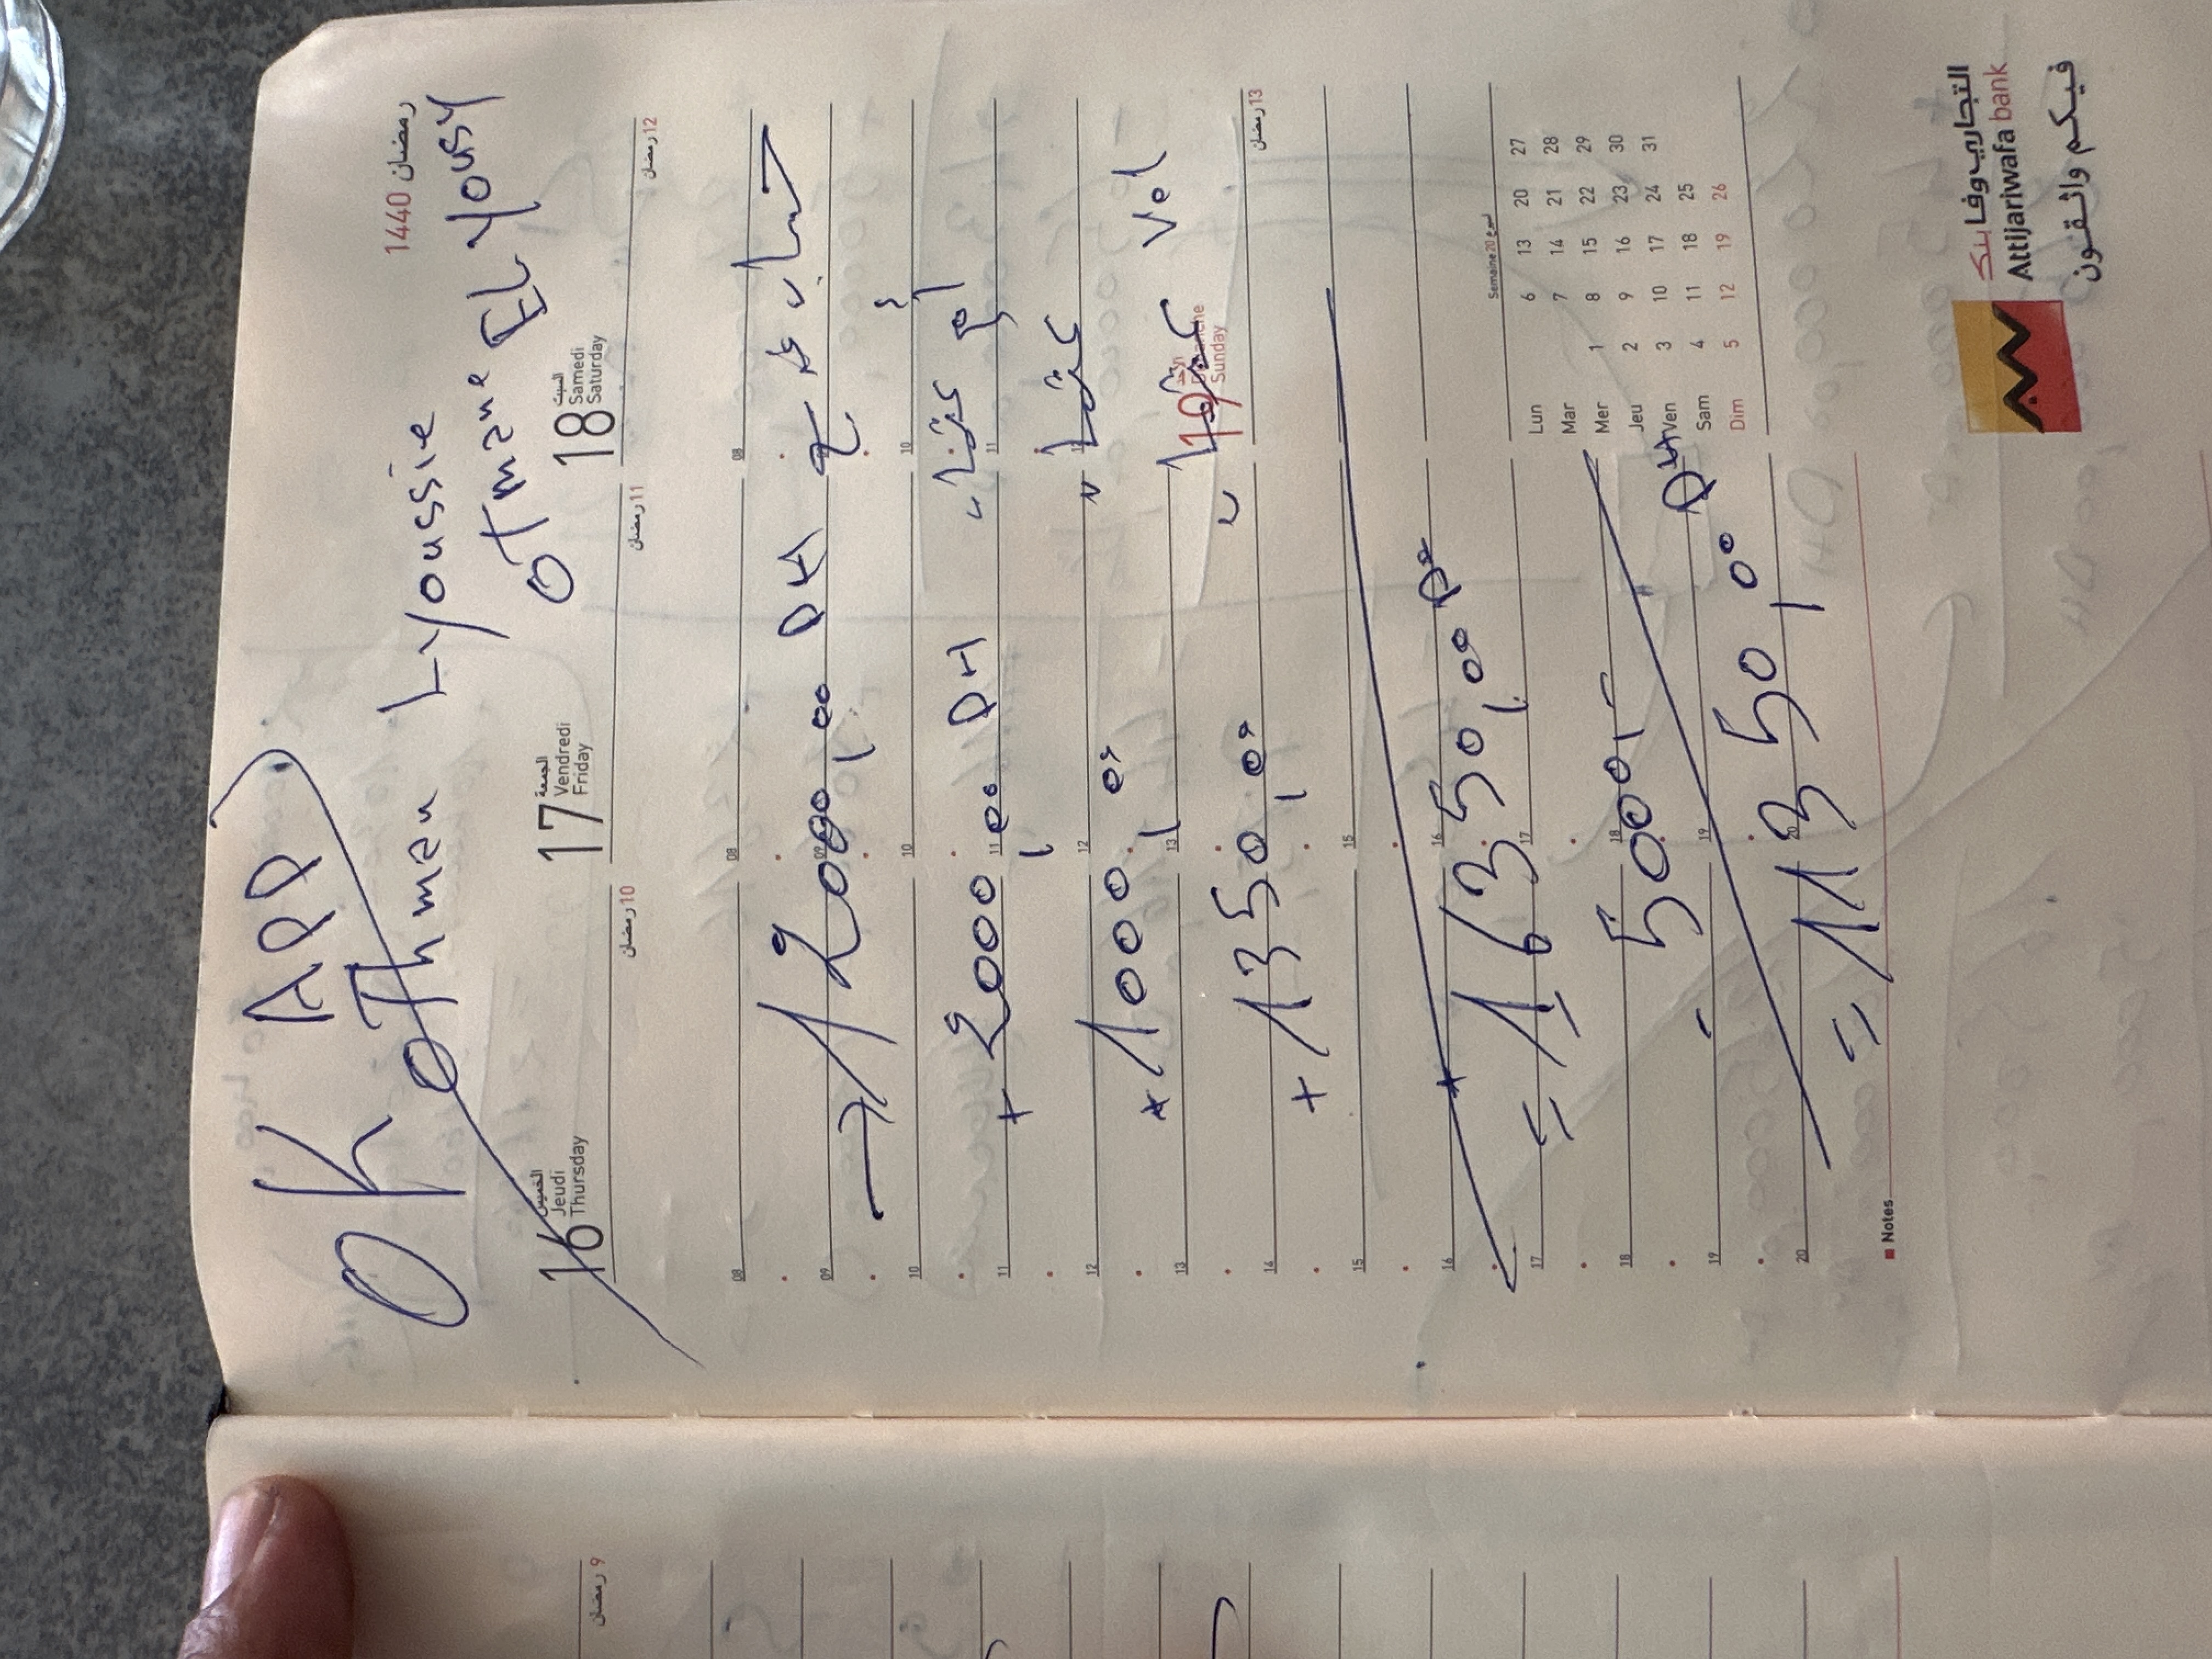 OK APP
Othman Lyoussie
OTmane EL Yousy
رمضان 1440
16 الخميس Jeudi Thursday
10 رمضان
17 الجمعة Vendredi Friday
11 رمضان
18 السبت Samedi Saturday
12 رمضان
9 رمضان
08 08 08
12000,00 DH حساب
09 09
10 10 10
+ 2000,00 DH أم عثمان
11 11 11
12 12 12
+ 1000,00 عثمان
13 13
+ 1350,00 عثمان Vol
19 الأحد Dimanche Sunday
13 رمضان
14
15 15
16 16
= 16350,00 DH
17 17
- 5000,-
18 18
19 19
= 11350,00 DH
20 20
Notes
Semaine 20 أسبوع
Lun 6 13 20 27
Mar 7 14 21 28
Mer 1 8 15 22 29
Jeu 2 9 16 23 30
Ven 3 10 17 24 31
Sam 4 11 18 25
Dim 5 12 19 26
التجاري وفا بنك
Attijariwafa bank
فيكم واثقون